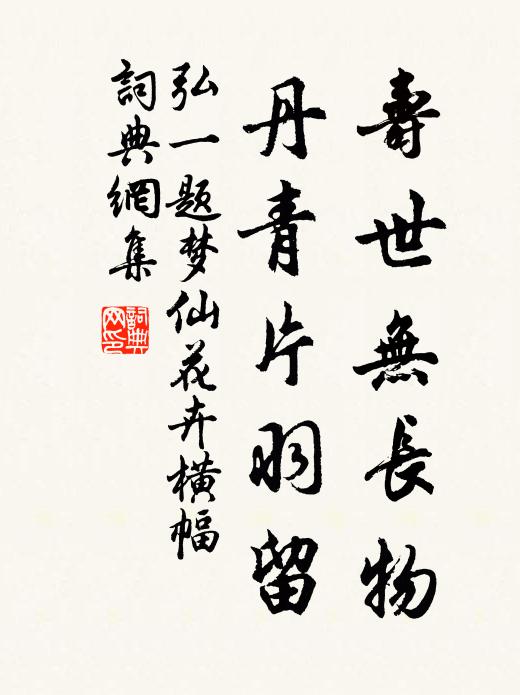 壽世無長物
丹青片羽留
弘一题梦仙花卉橫幅
詞典網集
詞典网印